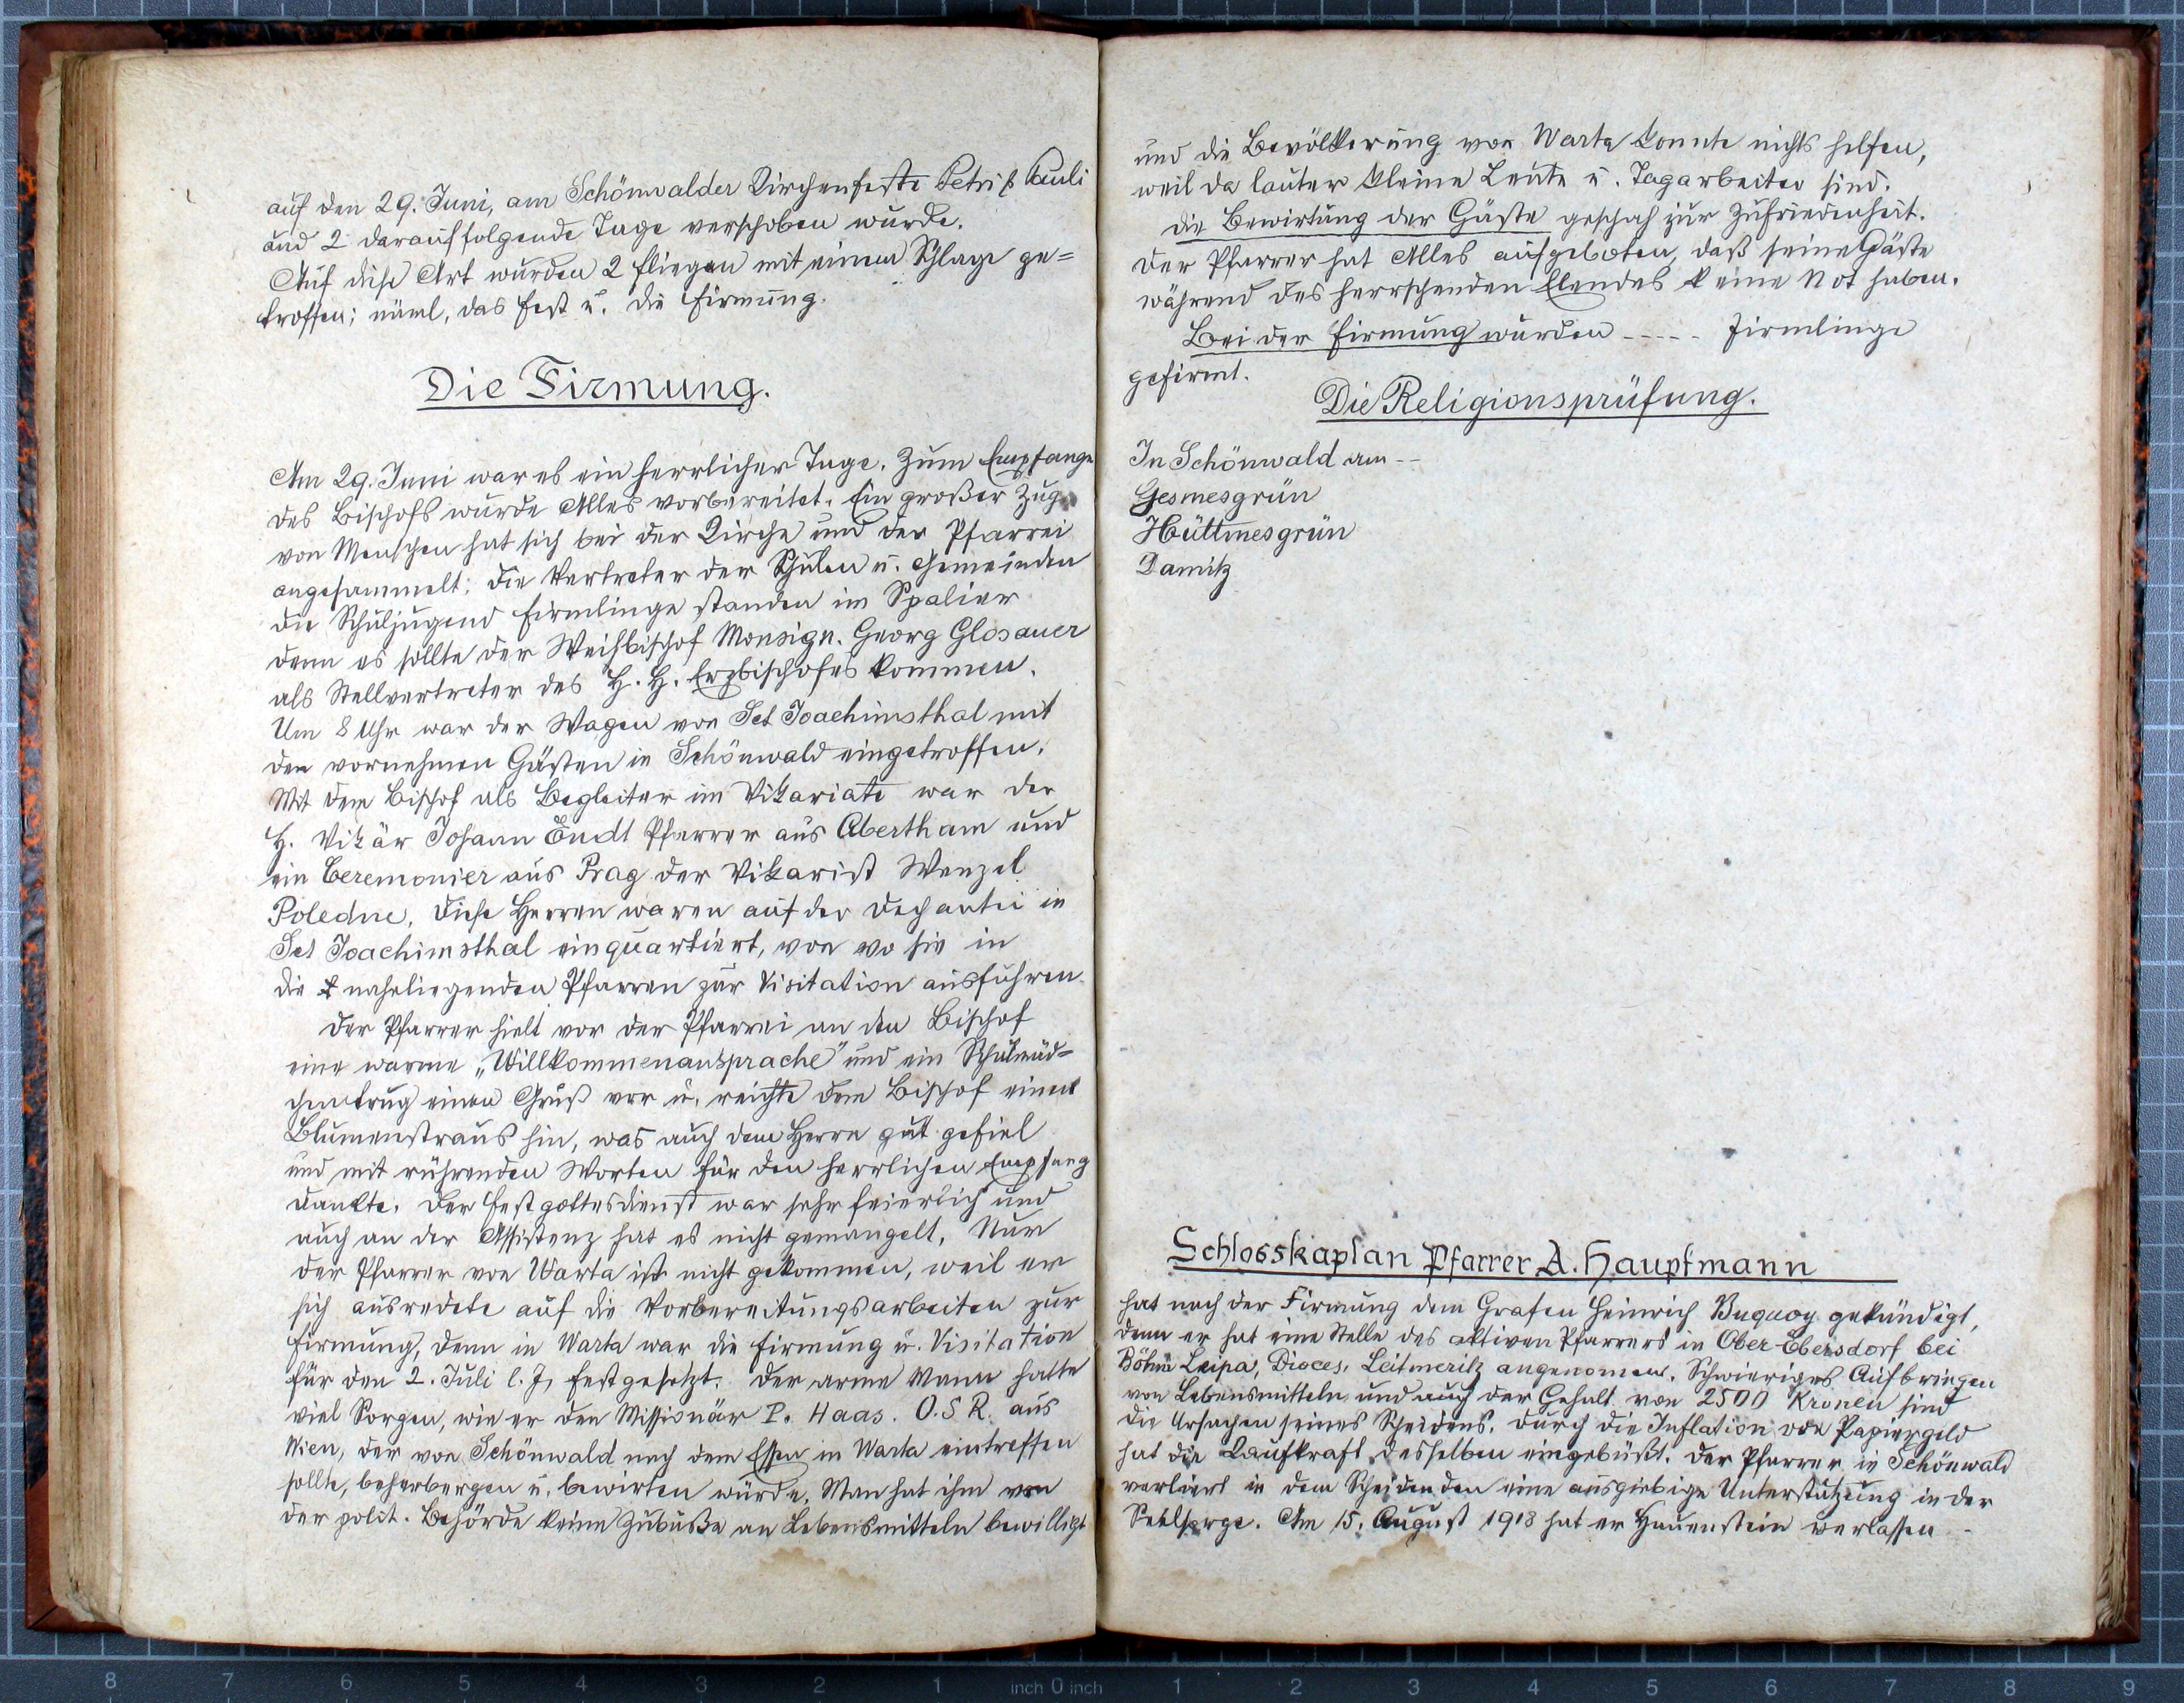 auf den 29. Juni, am Schönwalder Kirchenfeste Petri & Pauli
und 2 darauffolgende Tage verschoben wurde.
Auf diese Art wurden 2 Fliegen mit einem Schlage ge=
troffen; näml. das Fest u. die Firmung.
Die Firmung.
Am 29. Juni war es ein herrlicher Tage. Zum Empfange
des Bischofs wurde Alles vorbereitet. Ein großer Zug
von Menschen hat sich bei der Kirche und der Pfarrei
angesammelt: die Vertreter der Schulen u. Gemeinden
die Schuljugend Firmlinge standen im Spalier
denn es sollte der Weihbischof Monsign. Georg Glosauer
als Stellvertreter des H. H. Erzbischofes kommen.
Um 8 Uhr war der Wagen von Set Joachimsthal mit
den vornehmen Gästen in Schönwald eingetroffen.
Mit dem Bischof als Begleiter im Vikariate war der
H. Vikär Johann Endt Pfarrer aus Abertham und
ein Ceremonier aus Prag der Vikarist Wenzel
Poledne. Diese Herren waren auf der Dechantei in
Set Joachimsthal einquartiert, von wo sie in
die naheliegenden Pfarren zur Visitation ausfuhren.
Der Pfarrer hielt vor der Pfarrei an den Bischof
eine warme „Willkommenansprache" und ein Schulmäd=
chen trug einen Gruß vor u. reichte dem Bischof einen
Blumenstraus hin, was auch dem Herrn gut gefiel
und mit rührenden Worten für den herrlichen Empfang
dankte. Der Festgottesdienst war sehr feierlich und
auch an der Assistenz hat es nicht gemangelt. Nur
der Pfarrer von Warta ist nicht gekommen, weil er
sich ausredete auf die Vorbereitungsarbeiten zur
Firmung, denn in Warta war die Firmung u. Visitation
für den 2. Juli l. J. festgesetzt. Der arme Mann hatte
viel Sorgen, wie er den Missionär P. Haas. O.S.R. aus
Wien, der von Schönwald nach dem Essen in Warta eintreffen
sollte, beherbergen u. bewirten würde. Man hat ihm von
der polit. Behörde keine Zubuße an Lebensmitteln bewilligt
und die Bevölkerung von Warta konnte nichts helfen,
weil da lauter kleine Leute u. Tagarbeiter sind.
Die Bewirtung der Gäste geschah zur Zufriedenheit.
Der Pfarrer hat Alles aufgeboten, daß seine Gäste
während des herrschenden Elendes keine Not haben.
Bei der Firmung wurden ----- Firmlinge
gefirmt.
Die Religionsprüfung.
In Schönwald am --
Gesmesgrün
Hüttmesgrün
Damitz
Schlosskaplan Pfarrer A. Hauptmann
hat nach der Firmung dem Grafen Heinrich Buquoy gekündigt,
denn er hat eine Stelle des aktiven Pfarrers in Ober-Ebersdorf bei
Böhm Leipa, Dioces. Leitmeritz angenomen. Schwieriges Aufbringen
von Lebensmitteln und auch der Gehalt von 2500 Kronen sind
die Ursachen seines Scheidens. Durch die Inflation von Papiergeld
hat die Kaufkraft desselben eingebüßt. Der Pfarrer in Schönwald
verliert in dem Scheidenden eine ausgiebige Unterstützung in der
Seelsorge. Am 15. August 1918 hat er Hauenstein verlassen -